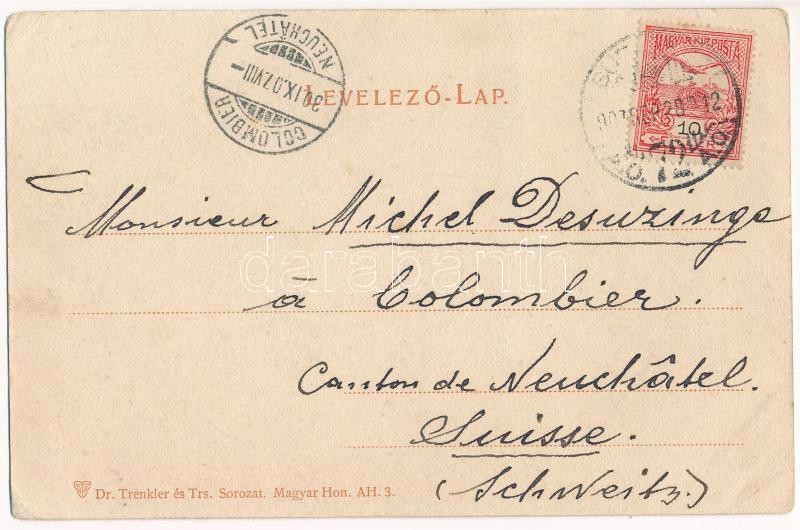 COLOMBIER
30.IX.07.VIII
NEUCHÂTEL
MAGYAR KIR. POSTA
10
LEVELEZŐ-LAP.
Monsieur Michel Desuzinge
à Colombier.
Canton de Neuchâtel.
Suisse.
(Schweitz.)
darabanth
Dr. Trenkler és Trs. Sorozat. Magyar Hon. AH. 3.